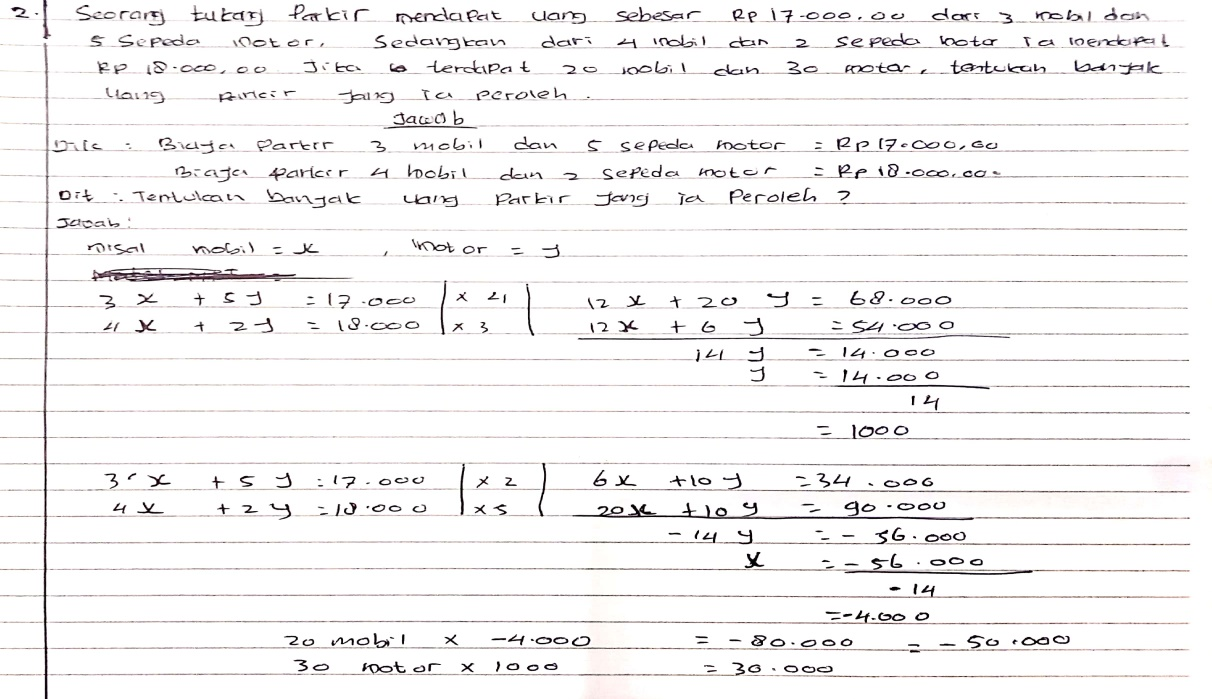 2. Seorang tukang Parkir mendapat uang sebesar Rp 17.000,00 dari 3 mobil dan
5 Sepeda motor, Sedangkan dari 4 mobil dan 2 Sepeda motor ia mendapat
Rp 18.000,00 Jika terdapat 20 mobil dan 30 motor, tentukan banyak
Uang parkir yang ia peroleh.
Jawab
Dik : Biaya Parkir 3 mobil dan 5 sepeda motor = Rp 17.000,00
Biaya parkir 4 mobil dan 2 sepeda motor = Rp 18.000,00.
Dit : Tentukan banyak uang Parkir yang ia Peroleh ?
Jawab:
misal mobil = x , motor = y
3 x + 5 y = 17.000 | x 4 | 12 x + 20 y = 68.000
4 x + 2 y = 18.000 | x 3 | 12 x + 6 y = 54.000
14 y = 14.000
y = 14.000
14
= 1000
3 x + 5 y = 17.000 | x 2 | 6 x + 10 y = 34.000
4 x + 2 y = 18.000 | x 5 | 20 x + 10 y = 90.000
- 14 y = - 56.000
x = - 56.000
- 14
= -4.000
20 mobil x -4.000 = - 80.000 = - 50.000
30 motor x 1000 = 30.000